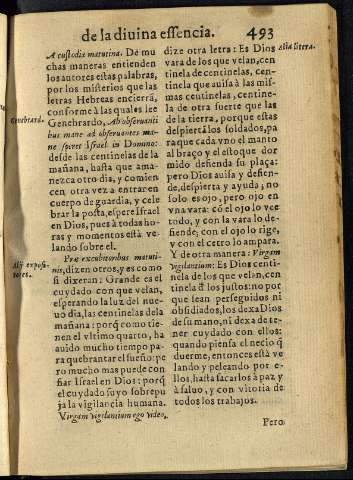 de la diuina essencia. 493
A custodia matutina. De mu
chas maneras entienden
los autores estas palabras,
por los misterios que las
letras Hebreas encierrã,
conforme à las quales lee
Genebrard.
Genebrardo, Ab obseruanti
bus mane ad obseruantes ma
ne speret Israel in Domino:
desde las centinelas de la
mañana, hasta que ama-
nezca otro dia, y comien
cen otra vez a entrar en
cuerpo de guardia, y cele
brar la posta, espere Israel
en Dios, pues à todas ho-
ras y momentos està ve
lando sobre el.
Alij exposi-
tores.
Præ excubitoribus matuti-
nis, dizen otros, y es como
si dixeran: Grande es el
cuydado con que velan,
esperando la luz del nue-
uo dia, las centinelas de la
mañana: porq̃ como tie-
nen el vltimo quarto, ha
auido mucho tiempo pa-
ra quebrantar el sueño: pe
ro mucho mas puede con
fiar Israel en Dios: porq̃
el cuydado suyo sobrepu
ja la vigilancia humana.
Virgam vigilantium ego video,
dize otra letra: Es Dios
Alia litera.
vara de los que velan, cen
tinela de centinelas, cen-
tinela que auisa à las mis-
mas centinelas, centine-
la de otra suerte que las
de la tierra, porque estas
despiertã los soldados, pa
ra que cada vno el manto
al braço y el estoque dor
mido defienda su plaça:
pero Dios auisa y defien-
de, despierta y ayuda; no
solo es ojo, pero ojo en
vna vara: cõ el ojo lo vee
todo, y con la vara lo de-
fiende; con el ojo lo rige,
y con el cetro lo ampara.
Y de otra manera: Virgam
vigilantium: Es Dios centi-
nela de los que velan, cen
tinela d̃ los justos: no por
que sean perseguidos ni
obsidiados, los dexa Dios
de su mano, ni dexa de te-
ner cuydado con ellos:
quando piensa el necio q̃
duerme, entonces està ve
lando y peleando por e-
llos, hasta sacarlos à paz y
à saluo, y con vitoria de
todos los trabajos.
Pero